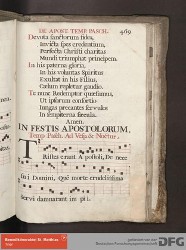 DE APOST. TEMP. PASCH. 469.
Devota sanctorum fides,
Invicta spes credentium,
Perfecta Christi charitas
Mundi triumphat principem.
In his paterna gloria,
In his voluntas Spiritus
Exultat in his Filius,
Cælum repletur gaudio.
Te nunc Redemptor quæsumus,
Ut ipsorum consortio
Jungas precantes servulos
In sempiterna sæcula.
Amen.
IN FESTIS APOSTOLORUM,
Temp. Pasch. Ad Vesp. & Noctur.
Tristes erant Apostoli, De nece
sui Domini, Quē morte crudelissima
servi damnarant im pii.